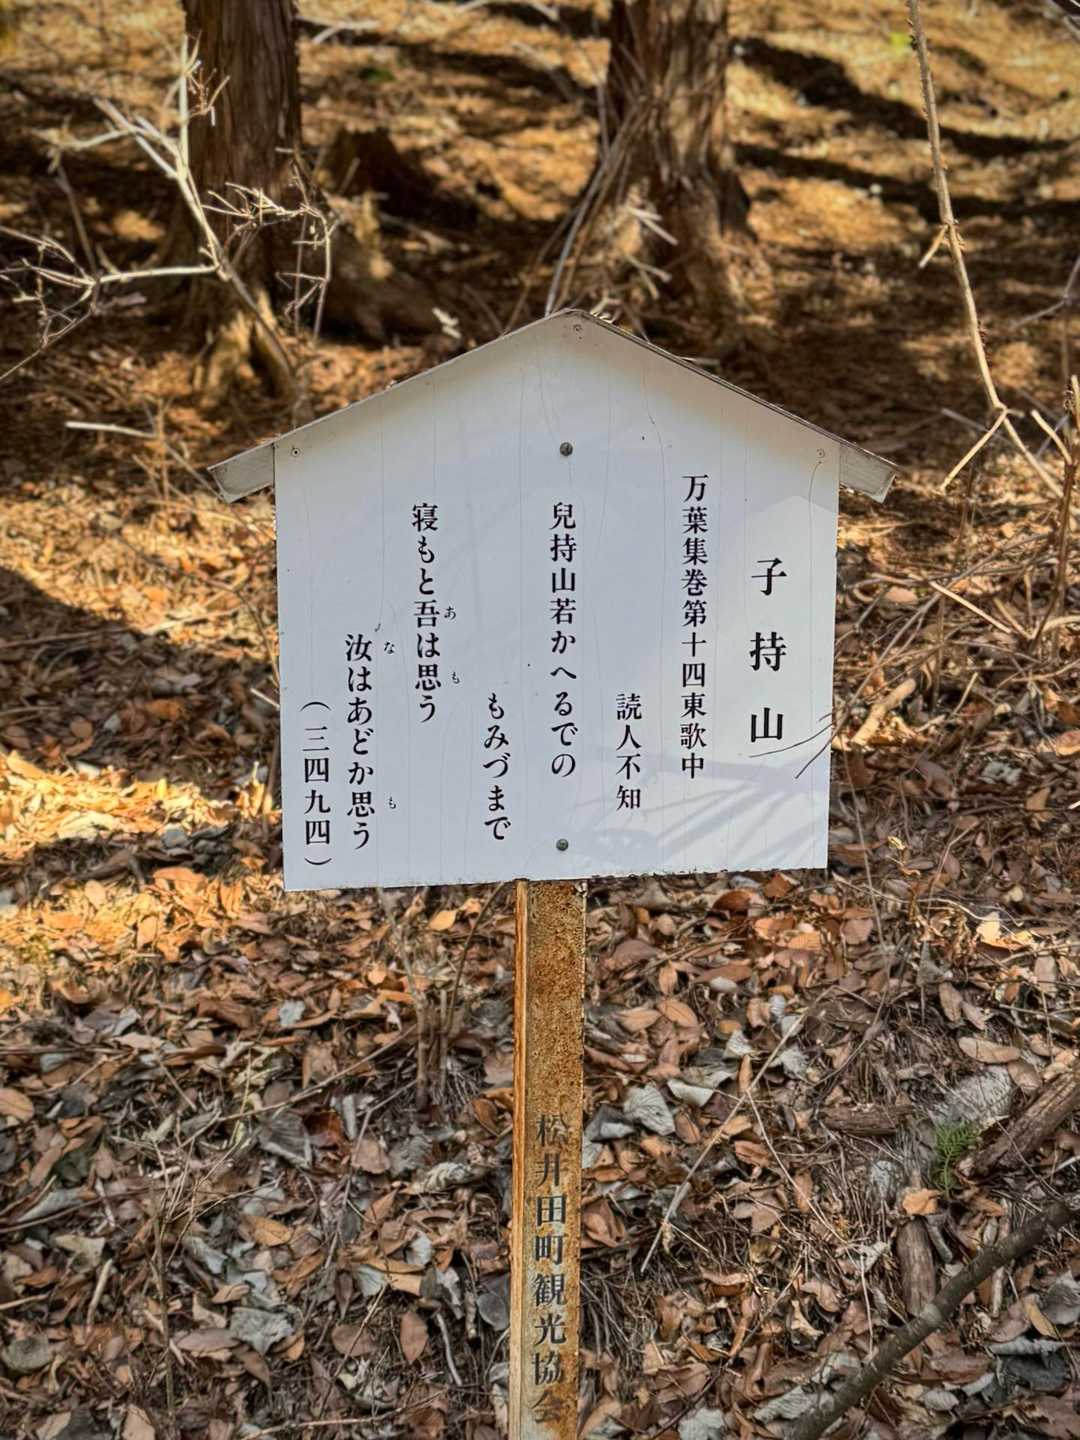 子持山
万葉集巻第十四東歌中
読人不知
兒持山若かへるでの
もみづまで
寝もと吾は思う
あ
も
汝はあどか思う
な
も
（三四九四）
松井田町観光協会